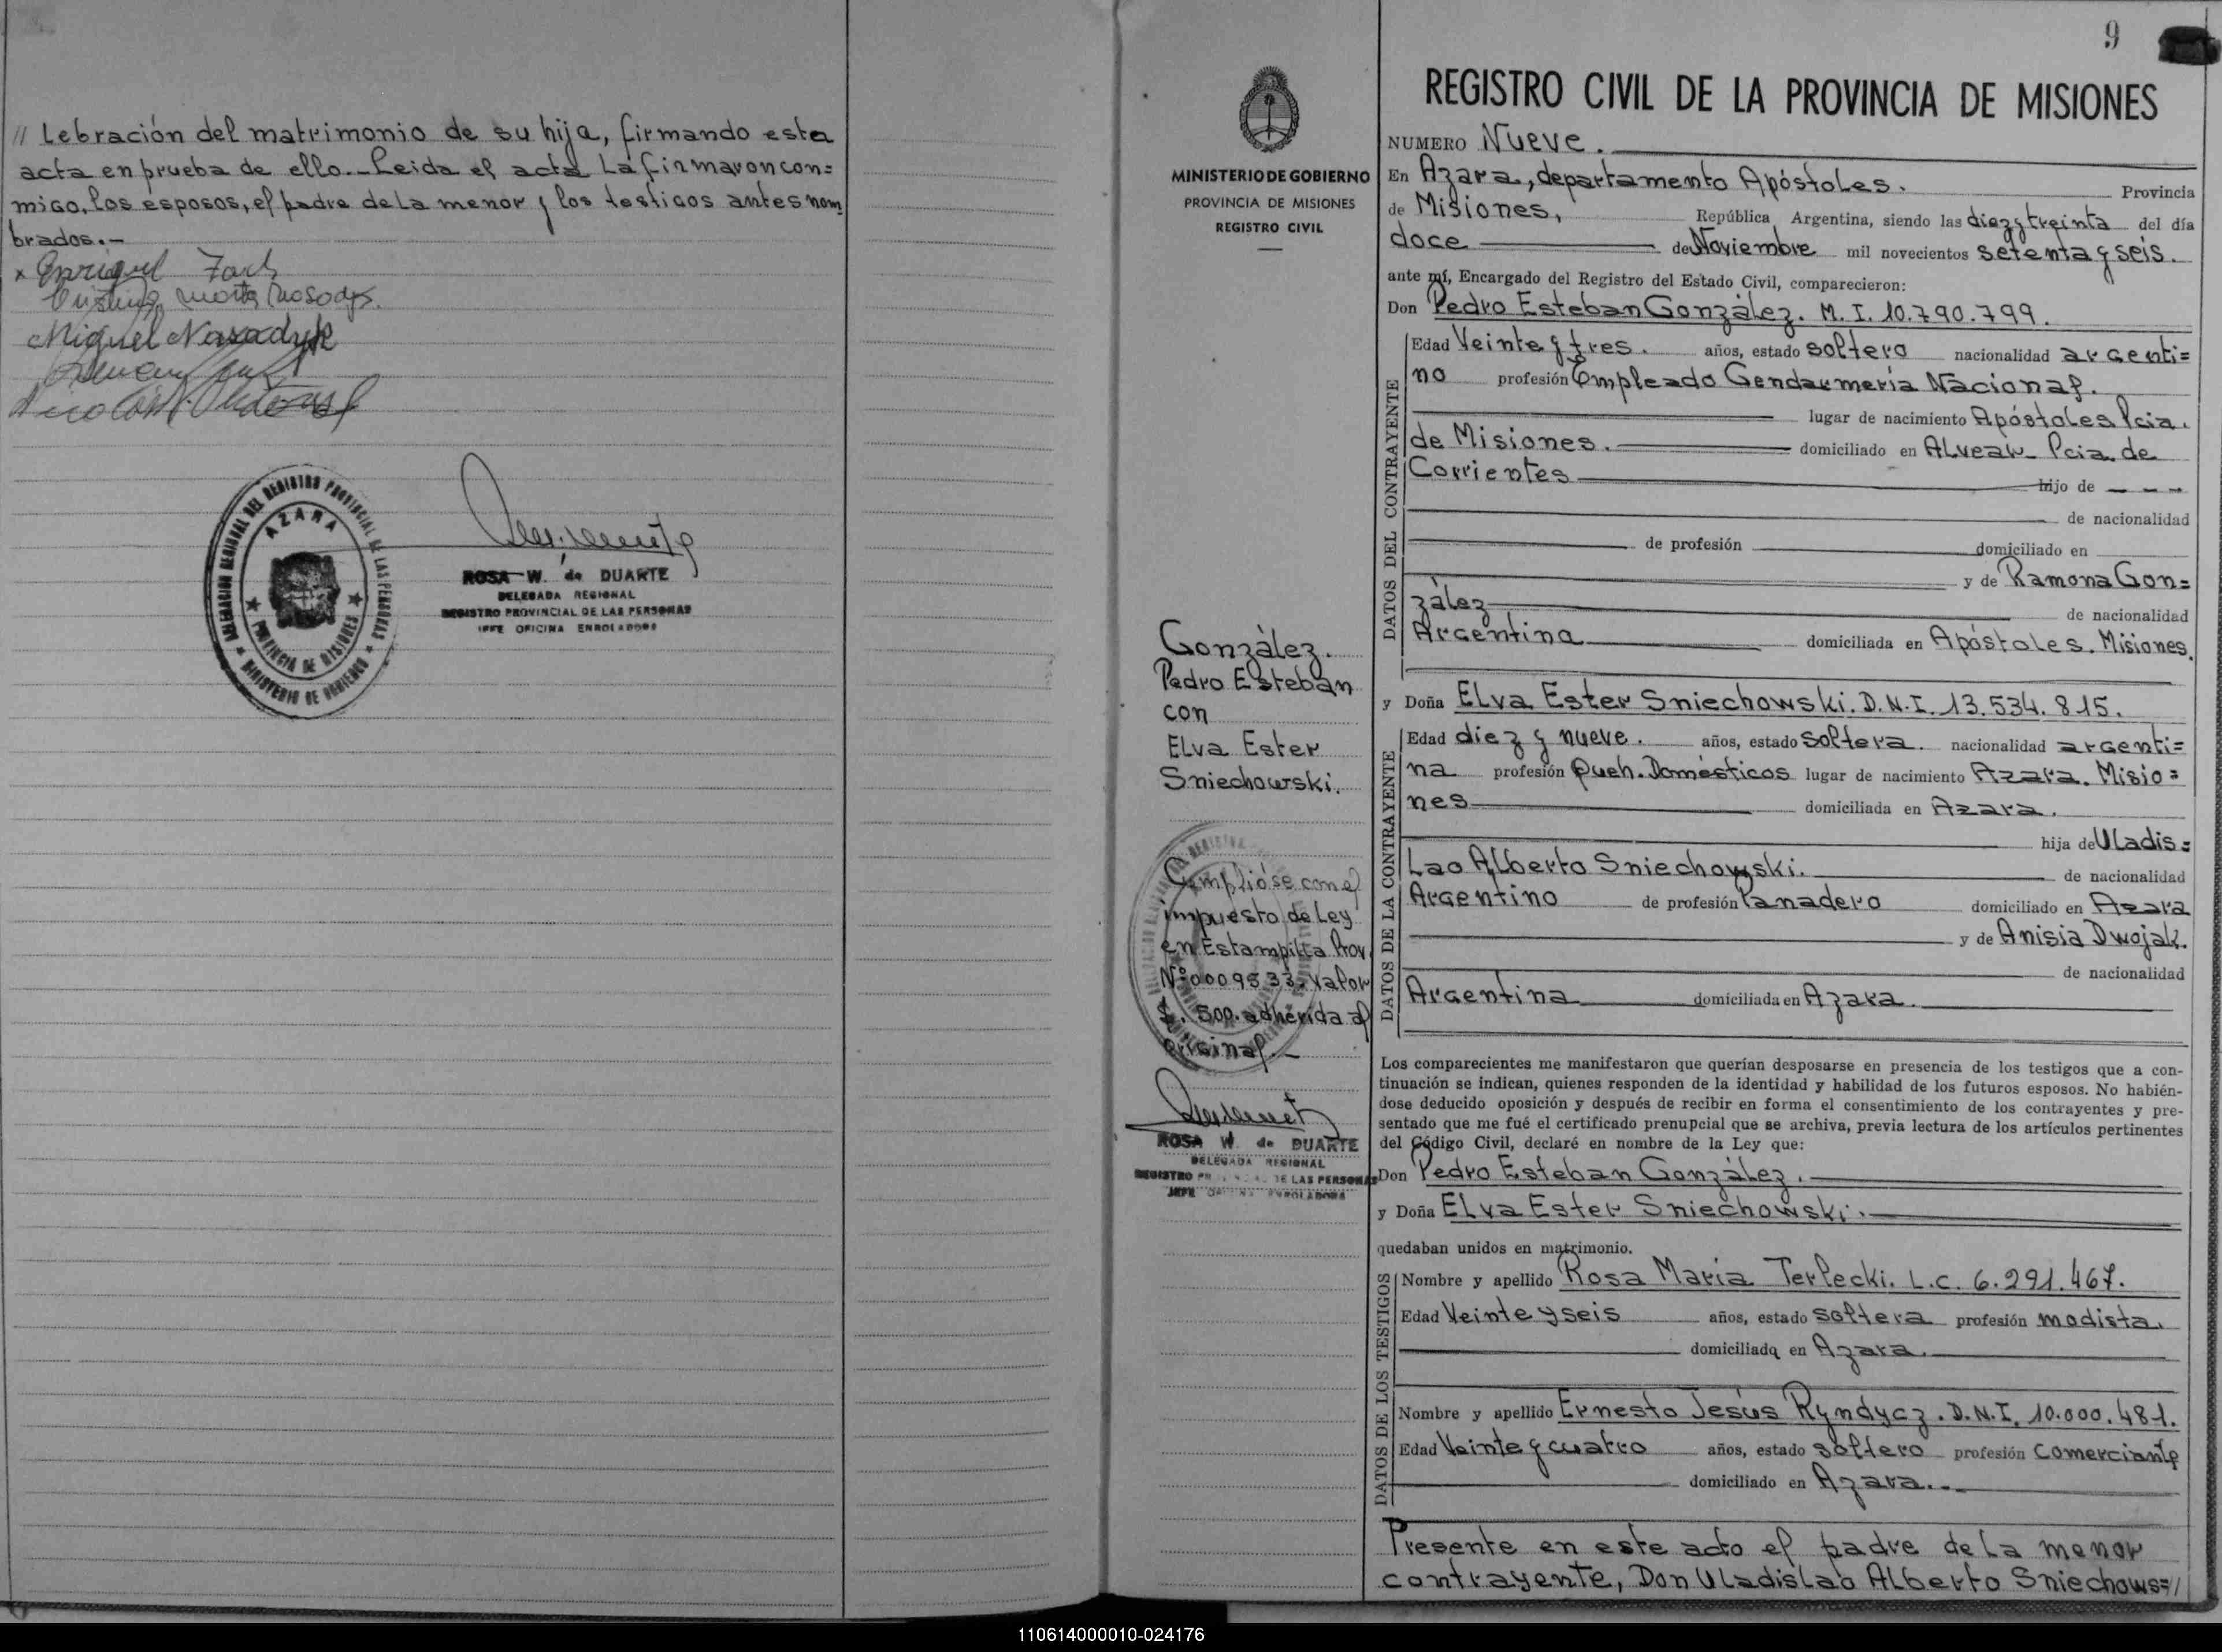 // Lebración del matrimonio de su hija, firmando esta
acta en prueba de ello.- Leida el acta La firmaron con=
migo, los esposos, el padre de La menor y los testigos antes nom
brados.-
x Enriquel
Miguel Nasadyk
DELEGACION REGIONAL DEL REGISTRO PROVINCIAL DE LAS PERSONAS
AZARA
PROVINCIA DE MISIONES
MINISTERIO DE GOBIERNO
ROSA W. de DUARTE
DELEGADA REGIONAL
REGISTRO PROVINCIAL DE LAS PERSONAS
JEFE OFICINA ENROLADORA
MINISTERIO DE GOBIERNO
PROVINCIA DE MISIONES
REGISTRO CIVIL
González.
Pedro Esteban
con
ELva Ester
Sniechowski.
Cumplióse con el
impuesto de Ley
en Estampilla Prov.
Nº 0009533, valor
$. 500. adherida al
original.-
ROSA W. de DUARTE
DELEGADA REGIONAL
REGISTRO PROVINCIAL DE LAS PERSONAS
JEFE OFICINA ENROLADORA
9
REGISTRO CIVIL DE LA PROVINCIA DE MISIONES
NUMERO Nueve.
En Azara, departamento Apóstoles. Provincia
de Misiones, República Argentina, siendo las diez y treinta del día
doce de Noviembre mil novecientos setenta y seis.
ante mí, Encargado del Registro del Estado Civil, comparecieron:
Don Pedro Esteban González. M. I. 10.790.799.
DATOS DEL CONTRAYENTE
Edad Veinte y tres. años, estado soltero nacionalidad argenti=
no profesión Empleado Gendarmería Nacional.
lugar de nacimiento Apóstoles Pcia.
de Misiones. domiciliado en ALvear- Pcia. de
Corrientes hijo de - - -
de nacionalidad
de profesión domiciliado en
y de Ramona Gon=
zález de nacionalidad
Argentina domiciliada en Apóstoles. Misiones.
y Doña ELva Ester Sniechowski. D.N.I. 13.534.815.
DATOS DE LA CONTRAYENTE
Edad diez y nueve. años, estado soltera. nacionalidad argenti=
na profesión Queh. Domésticos lugar de nacimiento Azara. Misio=
nes domiciliada en Azara.
hija de Uladis=
Lao Alberto Sniechowski. de nacionalidad
Argentino de profesión Panadero domiciliado en Azara
y de Anisia Dwojak.
de nacionalidad
Argentina domiciliada en Azara.
Los comparecientes me manifestaron que querían desposarse en presencia de los testigos que a con-
tinuación se indican, quienes responden de la identidad y habilidad de los futuros esposos. No habién-
dose deducido oposición y después de recibir en forma el consentimiento de los contrayentes y pre-
sentado que me fué el certificado prenupcial que se archiva, previa lectura de los artículos pertinentes
del Código Civil, declaré en nombre de la Ley que:
Don Pedro Esteban González.
y Doña ELva Ester Sniechowski.
quedaban unidos en matrimonio.
DATOS DE LOS TESTIGOS
Nombre y apellido Rosa Maria Terlecki. L.C. 6.291.467.
Edad Veinte y seis años, estado soltera profesión modista.
domiciliada en Azara.
Nombre y apellido Ernesto Jesús Ryndycz. D.N.I. 10.000.481.
Edad Veinte y cuatro años, estado soltero profesión comerciante
domiciliado en Azara.-
Presente en este acto el padre de La menor
contrayente, Don Uladislao Alberto Sniechows=//
110614000010-024176